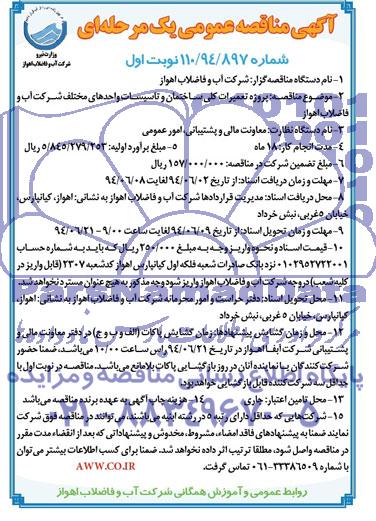 آگهی مناقصه عمومی یک مرحله‌ای
وزارت نیرو
شرکت آب و فاضلاب اهواز
شماره ۱۱۰/۹۴/۸۹۷ نوبت اول
۱- نام دستگاه مناقصه گزار: شرکت آب و فاضلاب اهواز
۲- موضوع مناقصه: پروژه تعمیرات کلی ساختمان و تاسیسات واحدهای مختلف شرکت آب و
فاضلاب اهواز
۳- نام دستگاه نظارت: معاونت مالی و پشتیبانی، امور عمومی
۴- مدت انجام کار: ۱۸ ماه ۵- مبلغ برآورد اولیه: ۵/۸۴۵/۲۷۹/۲۵۳ ریال
۶- مبلغ تضمین شرکت در مناقصه: ۱۵۷/۰۰۰/۰۰۰ ریال
۷- مهلت و زمان دریافت اسناد: از تاریخ ۹۴/۰۶/۰۲ لغایت ۹۴/۰۶/۰۸
۸- محل دریافت اسناد: مدیریت قراردادها شرکت آب و فاضلاب اهواز به نشانی: اهواز، کیانپارس،
خیابان ۵ غربی، نبش خرداد
۹- مهلت و زمان تحویل اسناد: از تاریخ ۹۴/۰۶/۰۹ لغایت ساعت ۹/۰۰ - ۹۴/۰۶/۲۱
۱۰- قیمت اسناد و نحوه واریز وجه به مبلغ ۲۵۰/۰۰۰ ریال که باید به شماره حساب
۰۱۰۲۹۵۲۷۲۲۰۰۱ نزد بانک صادرات شعبه فلکه اول کیانپارس اهواز کدشعبه ۲۳۰۷ (قابل واریز در
کلیه شعب) در وجه شرکت آب و فاضلاب اهواز واریز شود وجه مذکور به هیچ عنوان مسترد نخواهد شد.
۱۱- محل تحویل اسناد: دفتر حراست و امور محرمانه شرکت آب و فاضلاب اهواز به نشانی: اهواز،
کیانپارس، خیابان ۵ غربی، نبش خرداد
۱۲- محل و زمان گشایش پیشنهادها: زمان گشایش پاکات (الف و ب و ج) در دفتر معاونت مالی و
پشتیبانی شرکت آبفا اهواز در تاریخ ۹۴/۰۶/۲۱ راس ساعت ۱۰/۰۰ می‌باشد، ضمنا حضور
شرکت کنندگان یا نماینده آنان در روز بازگشایی پاکات بلامانع می‌باشد. مناقصه در نوبت اول با
حداقل سه شرکت کننده قابل بازگشایی خواهد بود.
۱۳- محل تامین اعتبار: جاری ۱۴- هزینه چاپ آگهی به عهده برنده مناقصه می‌باشد
۱۵- شرکت‌هایی که حداقل دارای رتبه ۵ در رشته ابنیه می‌باشند، می‌توانند در مناقصه فوق شرکت
نمایند ضمنا به پیشنهادهای فاقد امضاء، مشروط، مخدوش و پیشنهاداتی که بعد از انقضاء مدت مقرر
در مناقصه واصل شود، مطلقا ترتیب اثر داده نخواهد شد. ضمنا برای کسب اطلاعات بیشتر می‌توان
با شماره ۳۳۳۸۶۵۰۹-۰۶۱ تماس گرفت. AWW.CO.IR
روابط عمومی و آموزش همگانی شرکت آب و فاضلاب اهواز